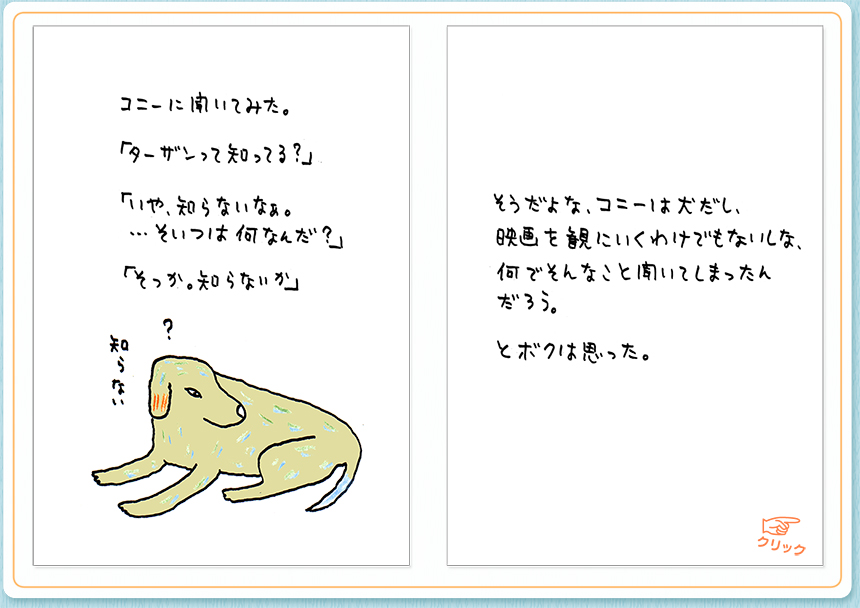 コニーに聞いてみた。
「ターザンって知ってる?」
「いや、知らないなぁ。
…そいつは何なんだ?」
「そっか。知らないか」
?
知らない
そうだよな、コニーは犬だし、
映画を観にいくわけでもないしな、
何でそんなこと聞いてしまったん
だろう。
とボクは思った。
クリック